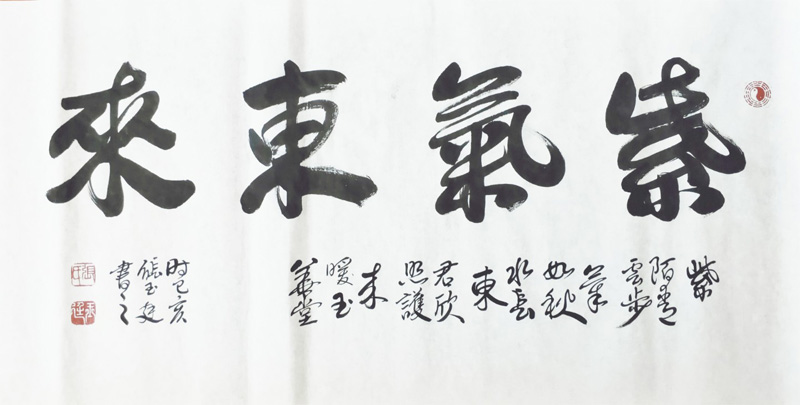 紫氣東來
紫
陌青
雲步
氣
如秋
水長
東
君欣
照護
來
暖玉
華堂
时己亥
張玉廷
書之